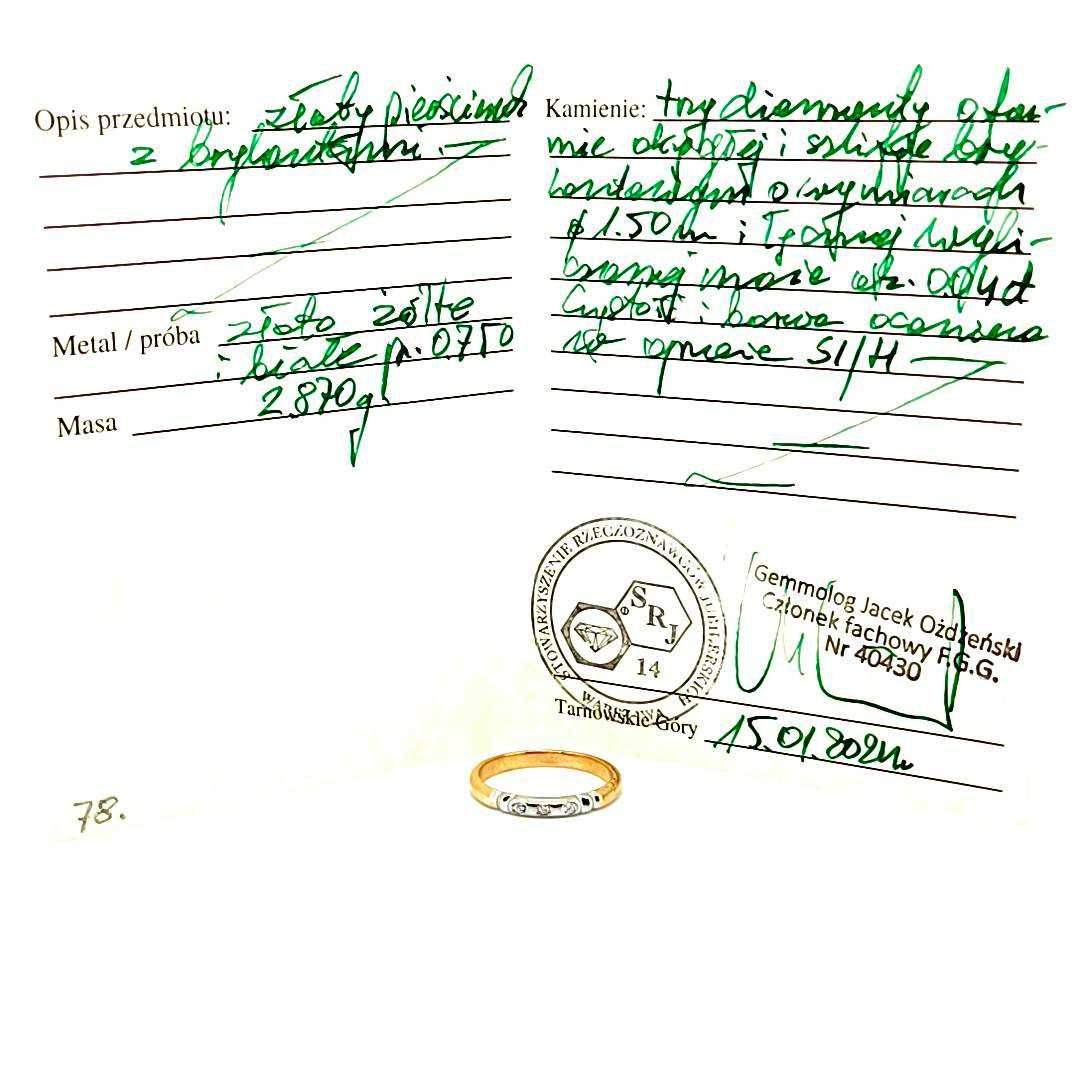 Opis przedmiotu: złoty pierścionek
z brylantami.
Metal / próba złoto żółte
i białe pr. 0.750
Masa 2.870g
Kamienie: trzy diamenty o for-
mie okrągłej i szlifie bry-
lantowym o wymiarach
ϕ 1.50 m i łącznej wyli-
czonej masie 0.04ct
Czystość i barwa oceniona
w oprawie SI/H
STOWARZYSZENIE RZECZOZNAWCÓW JUBILERSKICH
WARSZAWA
SRJ
14
Gemmolog Jacek Ożdżeński
Członek fachowy F.G.G.
Nr 40430
Tarnowskie Góry 15.01.2021r.
78.